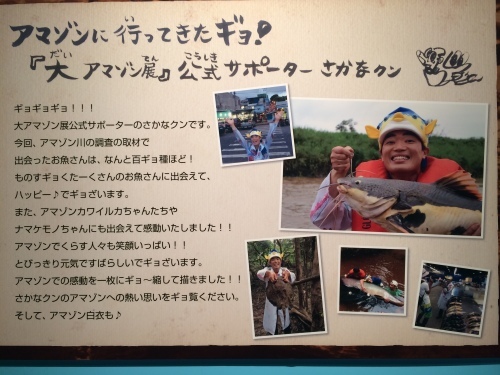 アマゾンに行ってきたギョ!
『大アマゾン展』公式サポーターさかなクン
だい てん こうしき
ギョギョギョ！！！
大アマゾン展公式サポーターのさかなクンです。
今回、アマゾン川の調査の取材で
出会ったお魚さんは、なんと百ギョ種ほど！
ものすギョくたーくさんのお魚さんに出会えて、
ハッピー♪でギョざいます。
また、アマゾンカワイルカちゃんたちや
ナマケモノちゃんにも出会えて感動いたしました！！
アマゾンでくらす人々も笑顔いっぱい！！
とびっきり元気ですばらしいでギョざいます。
アマゾンでの感動を一枚にギョ～縮して描きました！！
さかなクンのアマゾンへの熱い思いをギョ覧ください。
そして、アマゾン白衣も♪